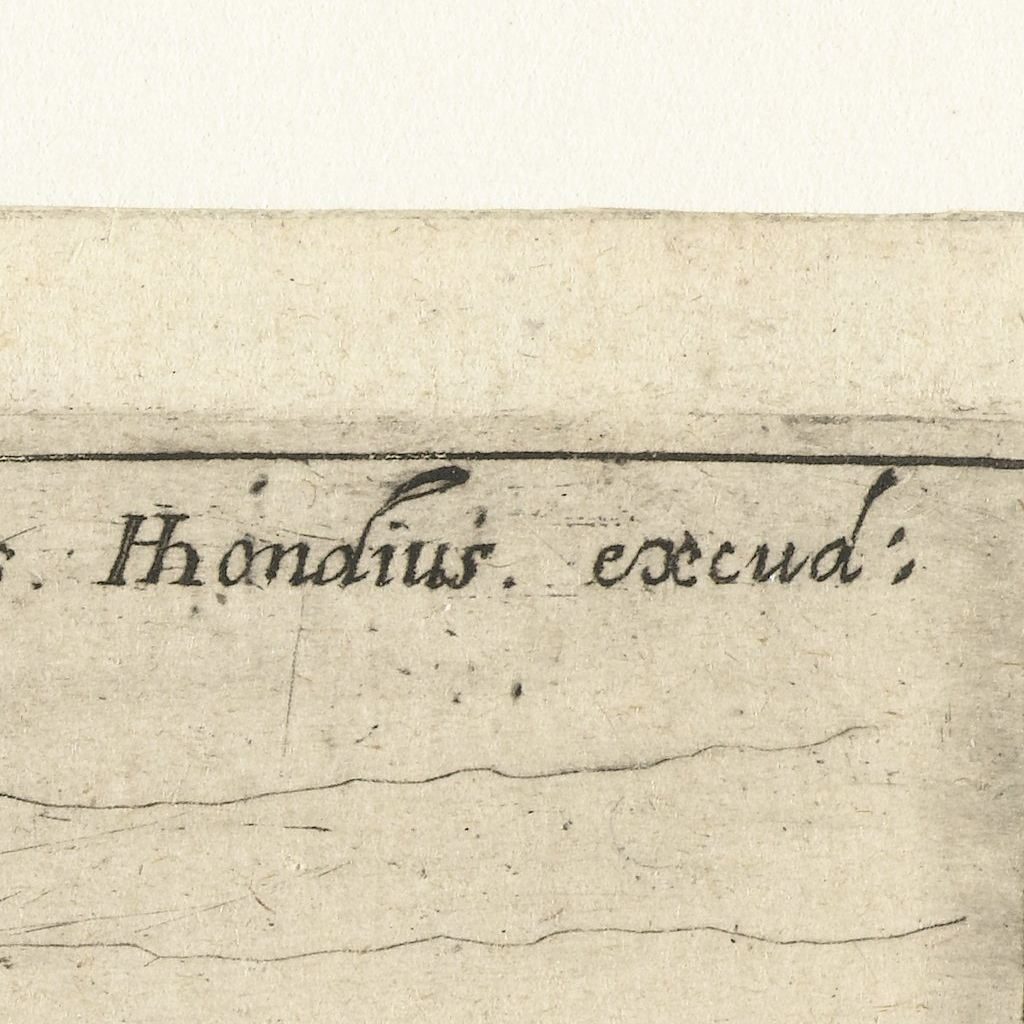 s. HHondius. excud: